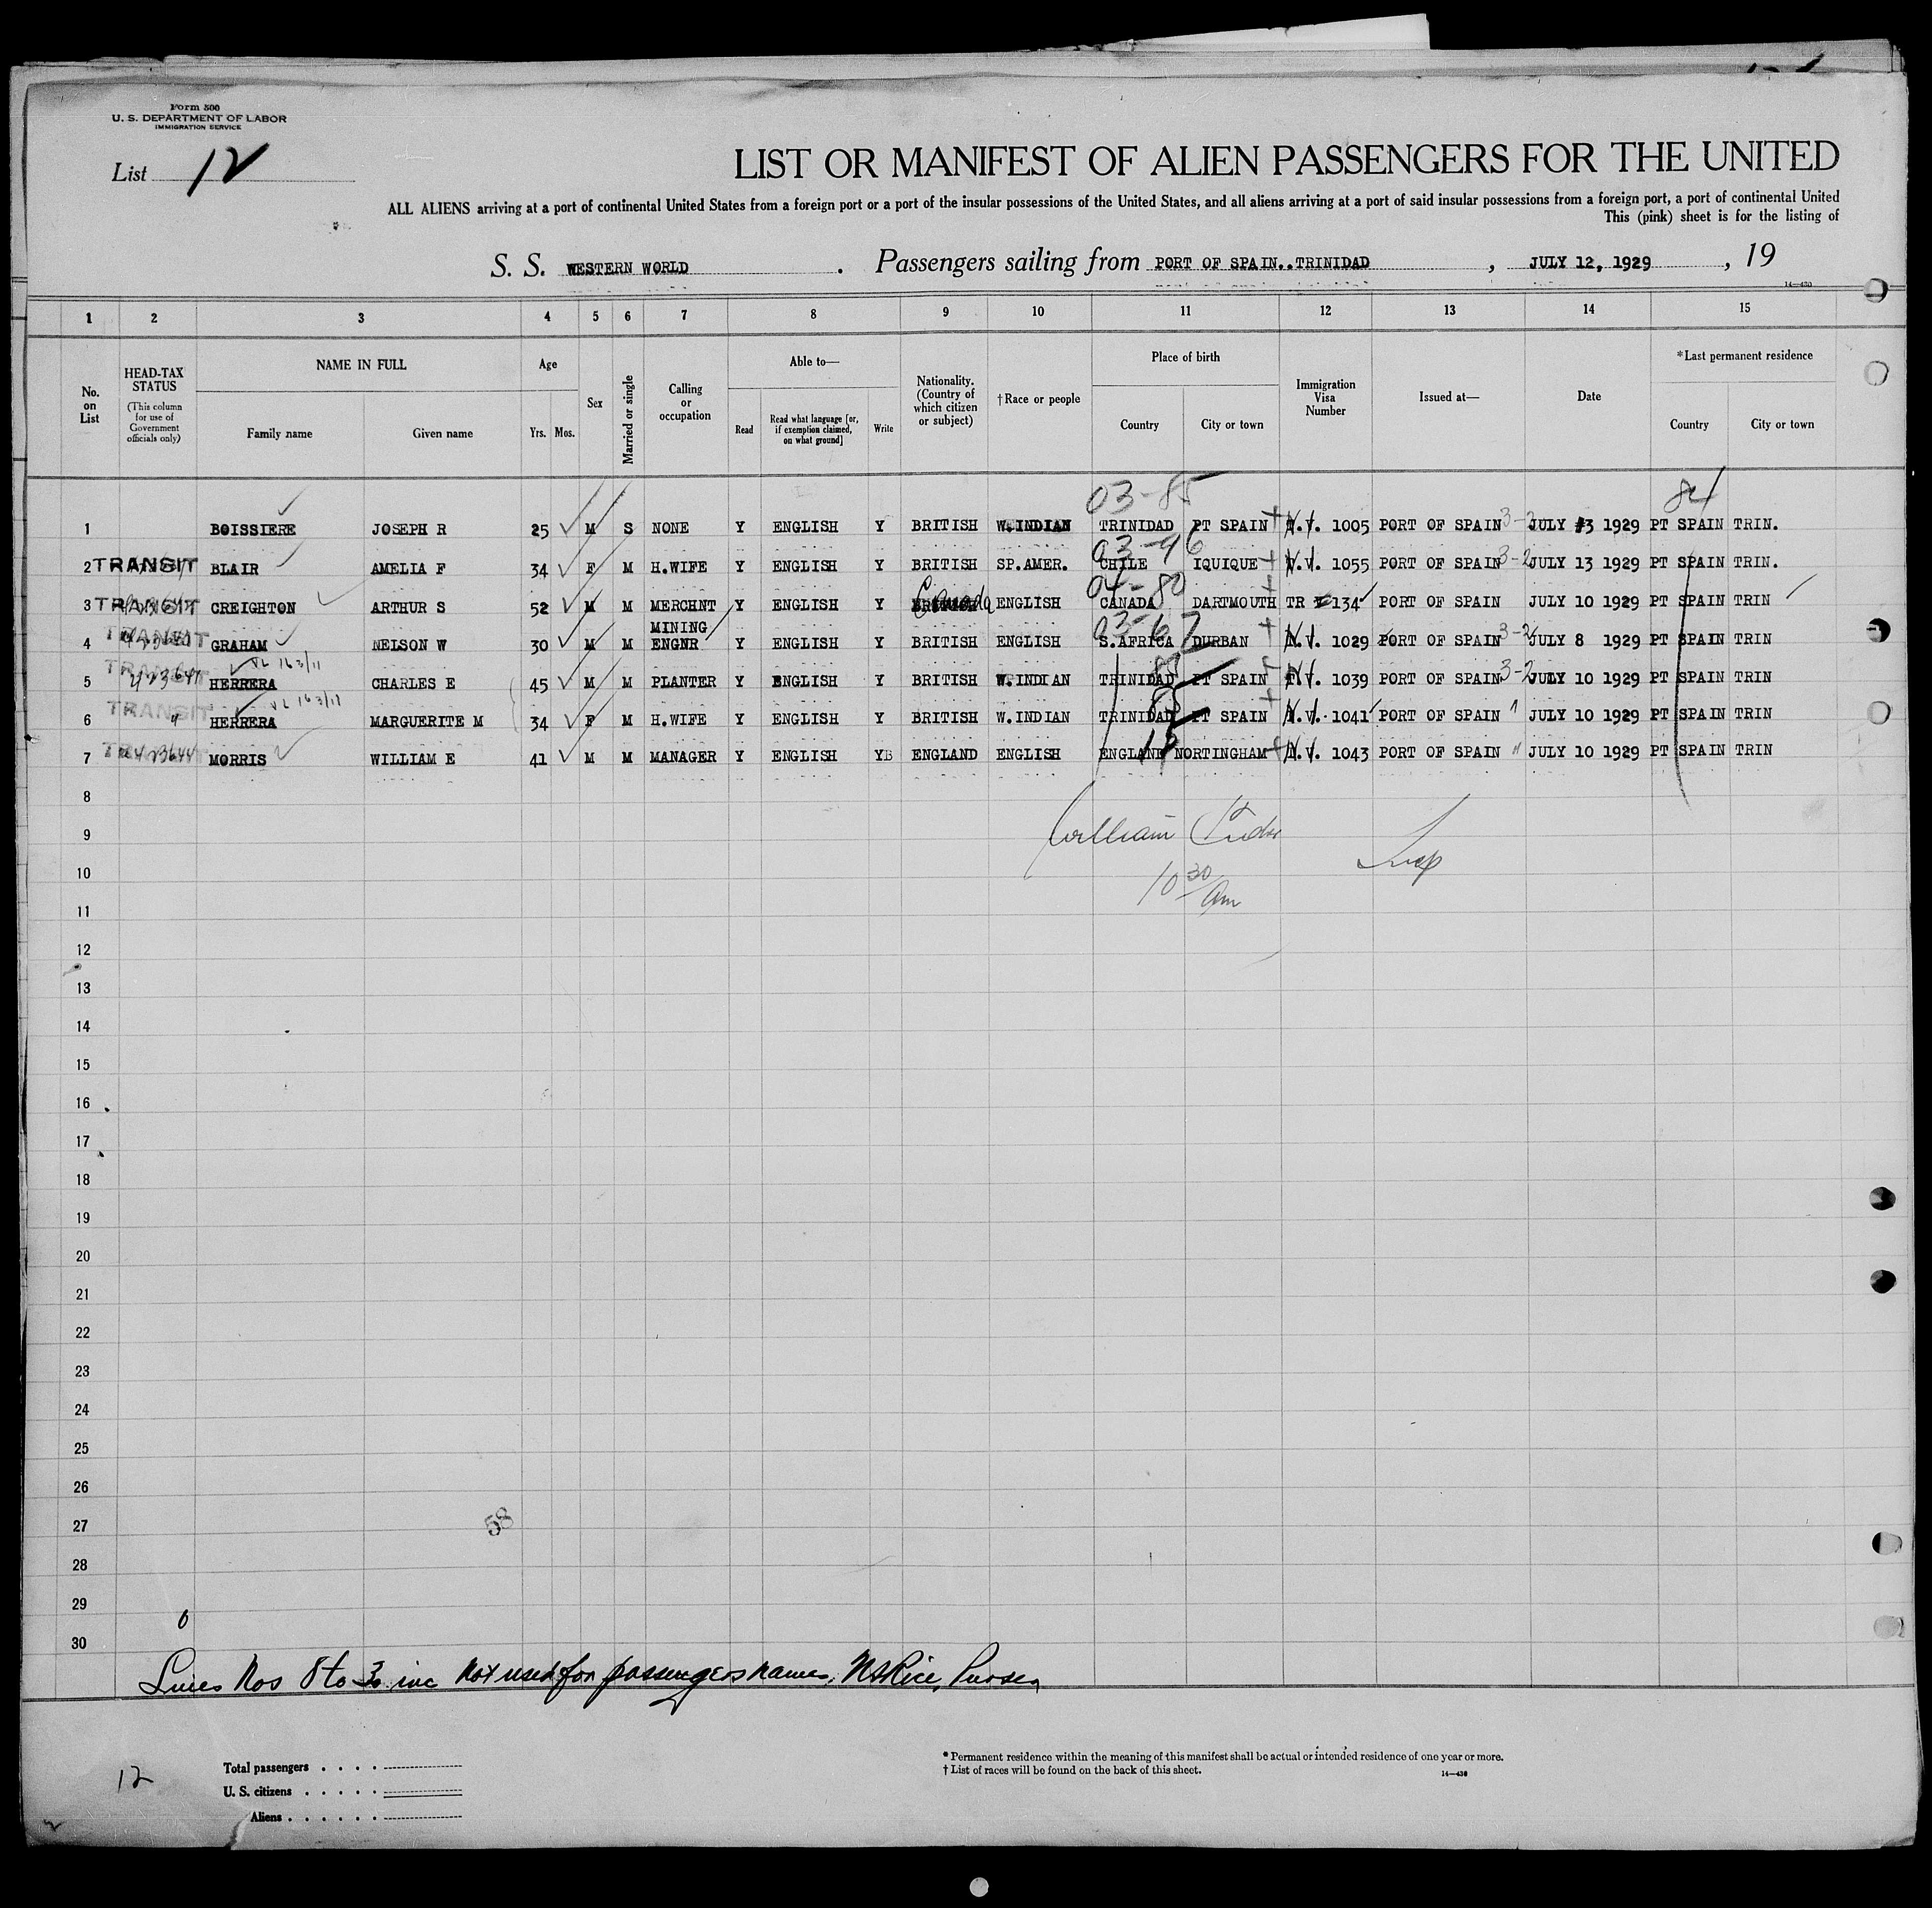 Form 500
U. S. DEPARTMENT OF LABOR
IMMIGRATION SERVICE
List 12
LIST OR MANIFEST OF ALIEN PASSENGERS FOR THE UNITED
ALL ALIENS arriving at a port of continental United States from a foreign port or a port of the insular possessions of the United States, and all aliens arriving at a port of said insular possessions from a foreign port, a port of continental United
This (pink) sheet is for the listing of
S. S. WESTERN WORLD . Passengers sailing from PORT OF SPAIN..TRINIDAD , JULY 12, 1929 , 19
14—430
1 2 3 4 5 6 7 8 9 10 11 12 13 14 15
No. on List
HEAD-TAX STATUS
(This column for use of Government officials only)
NAME IN FULL
Family name Given name
Age
Yrs. Mos.
Sex
Married or single
Calling or occupation
Able to—
Read
Read what language [or, if exemption claimed, on what ground]
Write
Nationality. (Country of which citizen or subject)
†Race or people
Place of birth
Country City or town
Immigration Visa Number
Issued at—
Date
*Last permanent residence
Country City or town
03-85 84
1 BOISSIERE JOSEPH R 25 M S NONE Y ENGLISH Y BRITISH W.INDIAN TRINIDAD PT SPAIN 1005 PORT OF SPAIN JULY 13 1929 PT SPAIN TRIN.
03-96
2 TRANSIT BLAIR AMELIA F 34 F M H.WIFE Y ENGLISH Y BRITISH SP.AMER. CHILE IQUIQUE 1055 PORT OF SPAIN 3-2 JULY 13 1929 PT SPAIN TRIN.
04-80
3 TRANSIT CREIGHTON ARTHUR S 52 M M MERCHNT Y ENGLISH Y Canada ENGLISH CANADA DARTMOUTH TR 134 PORT OF SPAIN JULY 10 1929 PT SPAIN TRIN
03-67
4 TRANSIT GRAHAM NELSON W 30 M M MINING ENGNR Y ENGLISH Y BRITISH ENGLISH S.AFRICA DURBAN 1029 PORT OF SPAIN 3-2 JULY 8 1929 PT SPAIN TRIN
5 TRANSIT HERRERA CHARLES E 45 M M PLANTER Y ENGLISH Y BRITISH W.INDIAN TRINIDAD PT SPAIN 1039 PORT OF SPAIN 3-2 JULY 10 1929 PT SPAIN TRIN
6 TRANSIT " HERRERA MARGUERITE M 34 F M H.WIFE Y ENGLISH Y BRITISH W.INDIAN TRINIDAD PT SPAIN 1041 PORT OF SPAIN " JULY 10 1929 PT SPAIN TRIN
7 MORRIS WILLIAM E 41 M M MANAGER Y ENGLISH Y ENGLAND ENGLISH ENGLAND NORTINGHAM 1043 PORT OF SPAIN " JULY 10 1929 PT SPAIN TRIN
8
9 William Insp
10 10 30 am
11
12
13
14
15
16
17
18
19
20
21
22
23
24
25
26
27 58
28
29
30
Lines Nos 8 to 30 inc not used for passengers names, Rice, Purser
12
Total passengers . . . .
U. S. citizens . . . . .
Aliens . . . . . .
* Permanent residence within the meaning of this manifest shall be actual or intended residence of one year or more.
† List of races will be found on the back of this sheet.
14—430